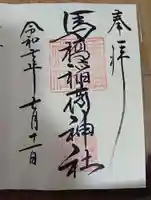 奉拝
馬橋稲荷神社
令和 年 月十一日